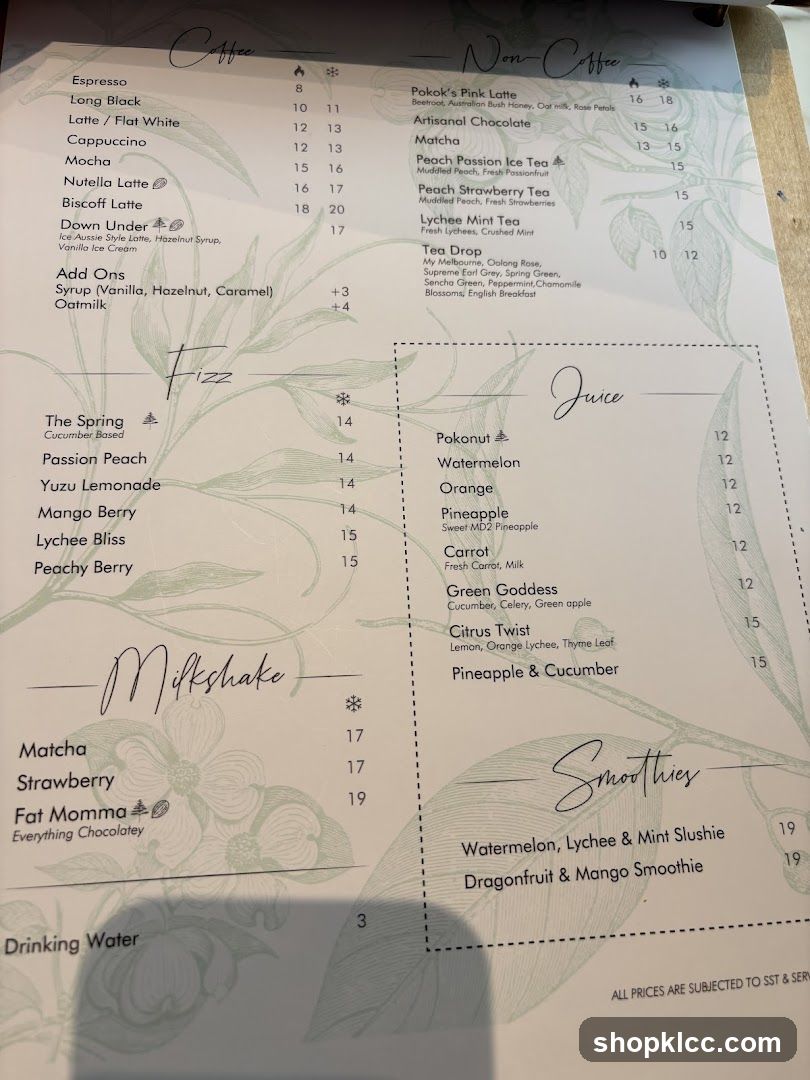 Coffee
Espresso 8
Long Black 10 11
Latte / Flat White 12 13
Cappuccino 12 13
Mocha 15 16
Nutella Latte 16 17
Biscoff Latte 18 20
Down Under 17
Ice Aussie Style Latte, Hazelnut Syrup,
Vanilla Ice Cream
Add Ons
Syrup (Vanilla, Hazelnut, Caramel) +3
Oatmilk +4
Non-Coffee
Pokok's Pink Latte 16 18
Beetroot, Australian Bush Honey, Oat milk, Rose Petals
Artisanal Chocolate 15 16
Matcha 13 15
Peach Passion Ice Tea 15
Muddled Peach, Fresh Passionfruit
Peach Strawberry Tea 15
Muddled Peach, Fresh Strawberries
Lychee Mint Tea 15
Fresh Lychees, Crushed Mint
Tea Drop 10 12
My Melbourne, Oolong Rose,
Supreme Earl Grey, Spring Green,
Sencha Green, Peppermint,Chamomile
Blossoms, English Breakfast
Fizz
The Spring 14
Cucumber Based
Passion Peach 14
Yuzu Lemonade 14
Mango Berry 14
Lychee Bliss 15
Peachy Berry 15
Juice
Pokonut 12
Watermelon 12
Orange 12
Pineapple 12
Sweet MD2 Pineapple
Carrot 12
Fresh Carrot, Milk
Green Goddess 12
Cucumber, Celery, Green apple
Citrus Twist 15
Lemon, Orange Lychee, Thyme Leaf
Pineapple & Cucumber 15
Milkshake
Matcha 17
Strawberry 17
Fat Momma 19
Everything Chocolatey
Smoothies
Watermelon, Lychee & Mint Slushie 19
Dragonfruit & Mango Smoothie 19
Drinking Water 3
ALL PRICES ARE SUBJECTED TO SST & SERV
shopklcc.com